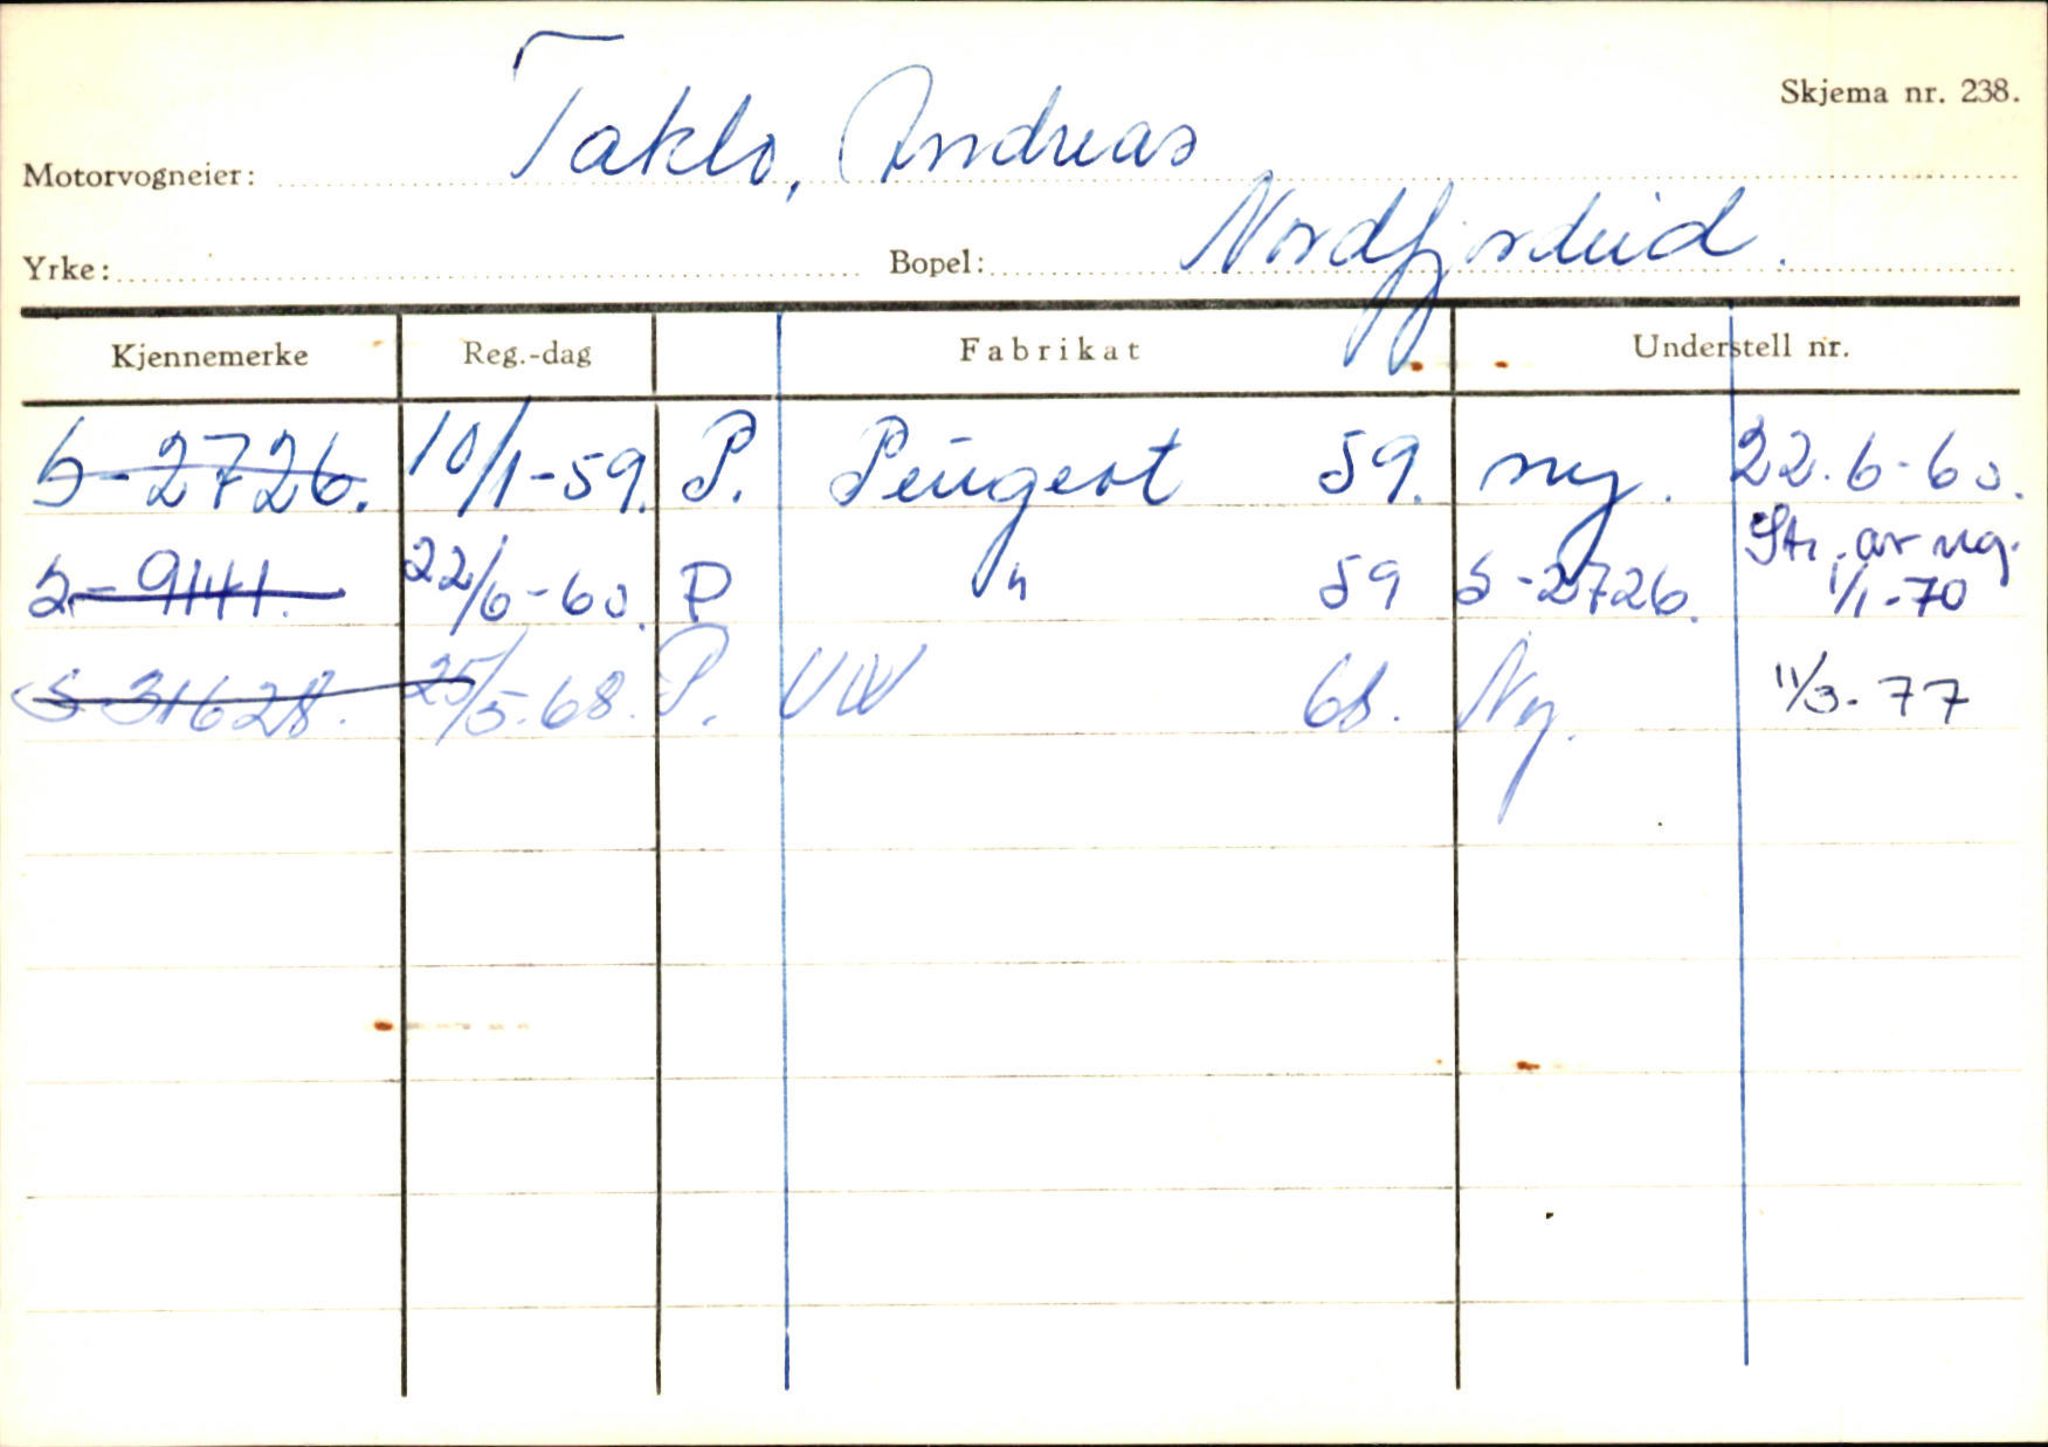 Skjema nr. 238.
Motorvogneier: Taklo, Andreas
Yrke: Bopel: Nordfjordeid.
Kjennemerke Reg.-dag Fabrikat Understell nr.
S-2726. 10/1-59. P. Peugeot 59. ny. 22.6-60.
S-9141. 22/6-60. P " 59 S-2726. Str. av reg. 1/1-70
S-31628. 25/5-68. P. VW 68. Ny. 11/3-77